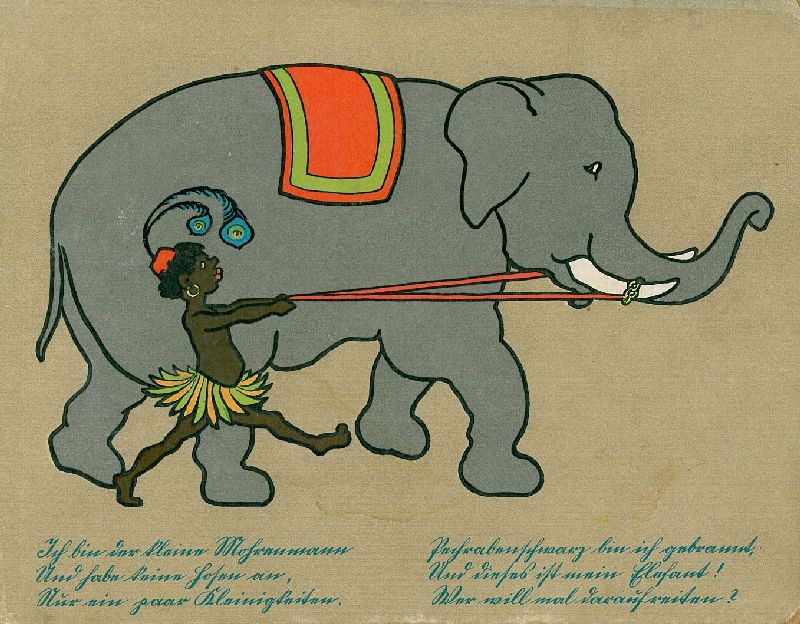 Ich bin der kleine Mohrenmann
Und habe keine Hosen an,
Nur ein paar Kleinigkeiten.
Pechrabenschwarz bin ich gebrannt,
Und dieses ist mein Elefant!
Wer will mal darauf reiten?